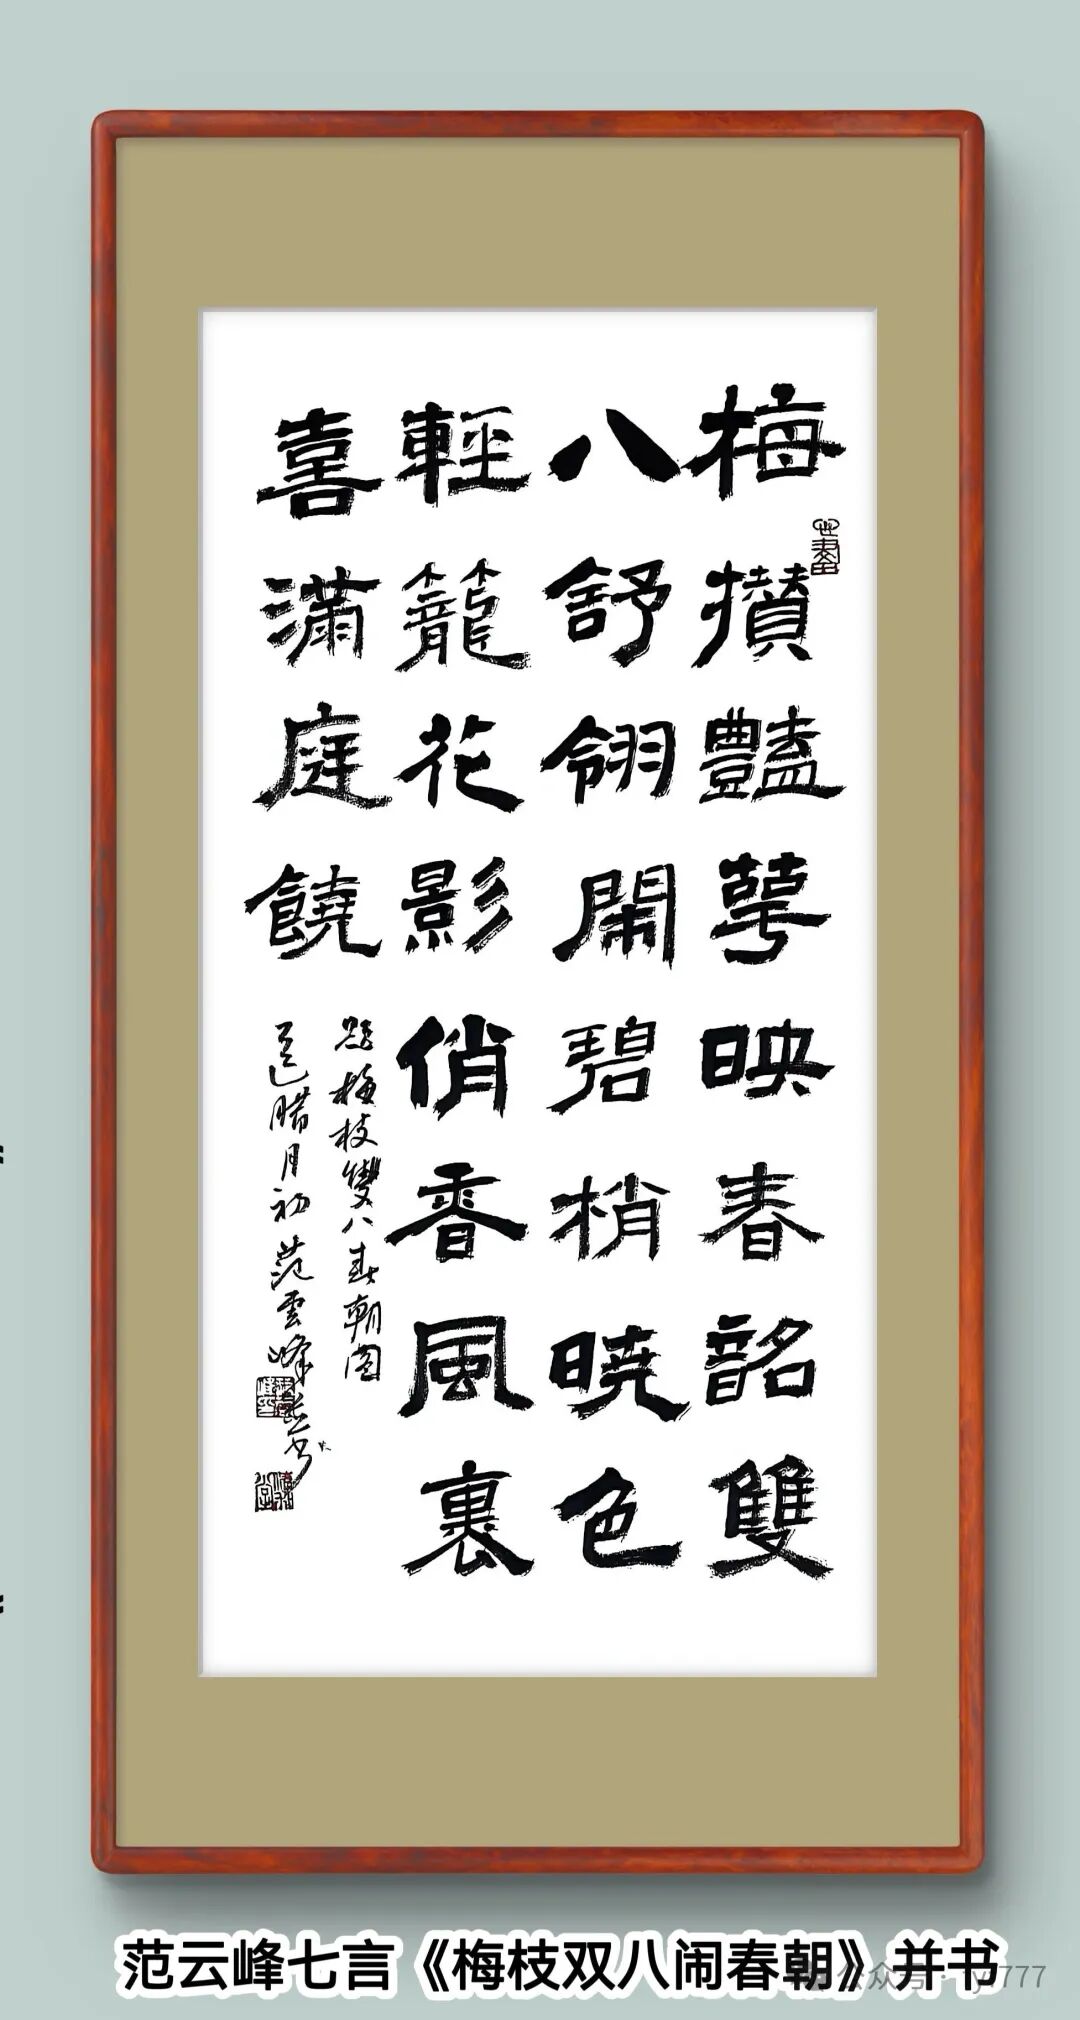 梅攅豔萼映春韶雙
八舒翎閙碧梢暁色
輕籠花影俏香風裏
喜滿庭饒
題梅枝雙八春朝图
乙巳腊月初范雲峰
范云峰七言《梅枝双八闹春朝》并书
公众号